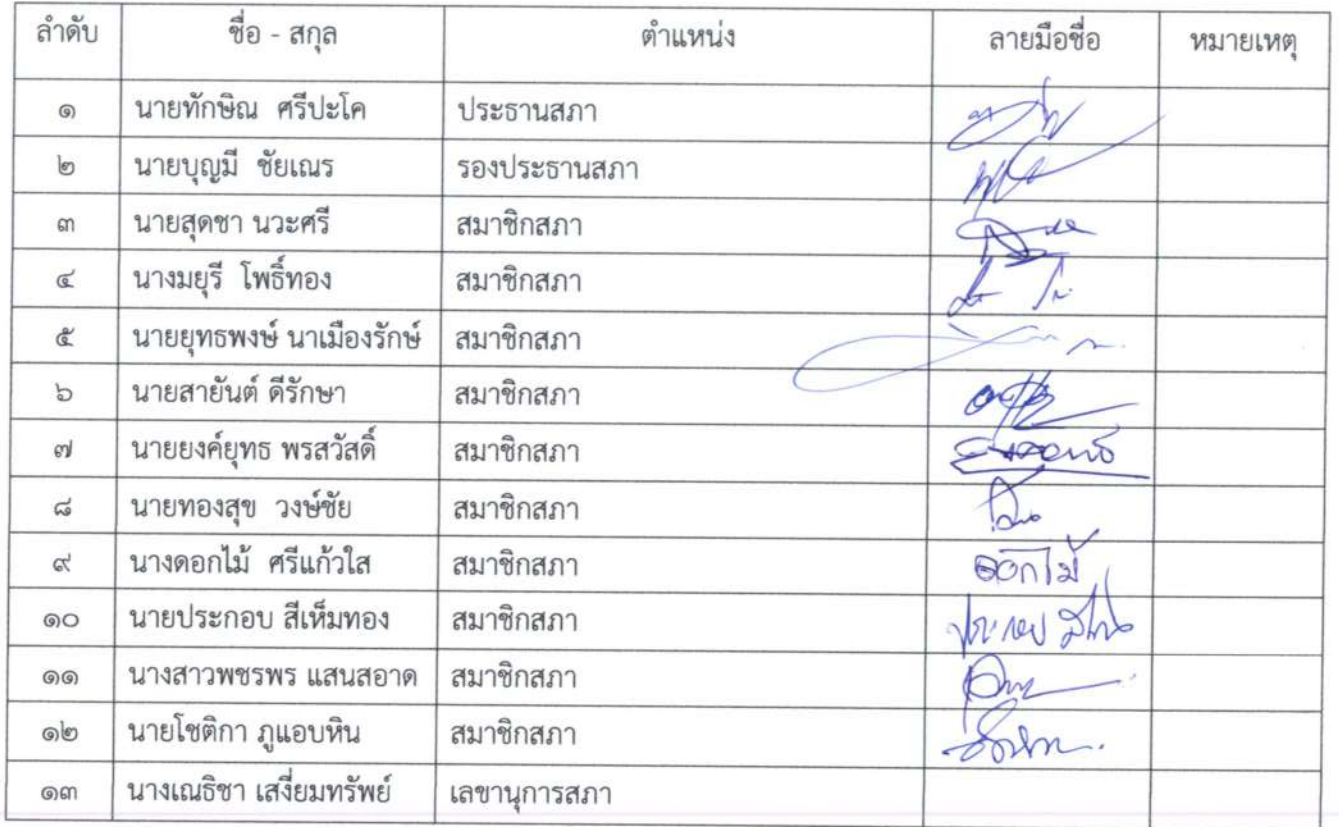 ลำดับ ชื่อ - สกุล ตำแหน่ง ลายมือชื่อ หมายเหตุ
๑ นายทักษิณ ศรีปะโค ประธานสภา
๒ นายบุญมี ชัยเณร รองประธานสภา
๓ นายสุดชา นวะศรี สมาชิกสภา
๔ นางมยุรี โพธิ์ทอง สมาชิกสภา
๕ นายยุทธพงษ์ นาเมืองรักษ์ สมาชิกสภา
๖ นายสายันต์ ดีรักษา สมาชิกสภา
๗ นายยงค์ยุทธ พรสวัสดิ์ สมาชิกสภา
๘ นายทองสุข วงษ์ชัย สมาชิกสภา
๙ นางดอกไม้ ศรีแก้วใส สมาชิกสภา ดอกไม้
๑๐ นายประกอบ สีเห็มทอง สมาชิกสภา
๑๑ นางสาวพชรพร แสนสอาด สมาชิกสภา
๑๒ นายโชติกา ภูแอบหิน สมาชิกสภา
๑๓ นางเณธิชา เสงี่ยมทรัพย์ เลขานุการสภา